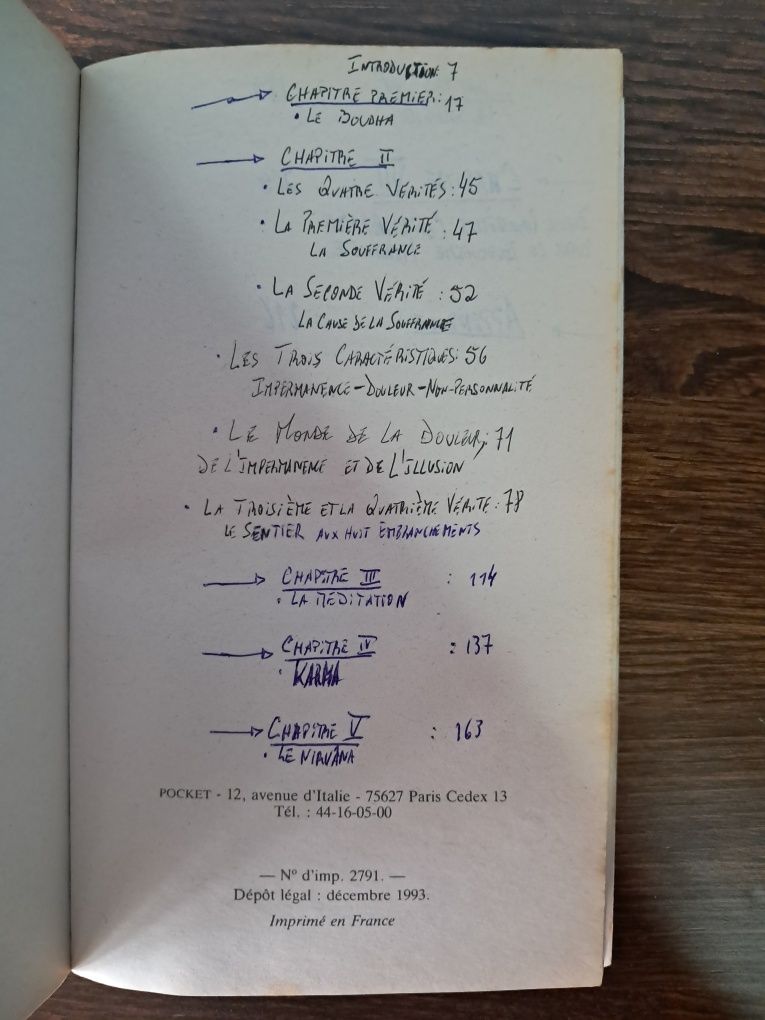 INTRODUCTION: 7
CHAPITRE PREMIER: 17
• LE BOUDHA
CHAPITRE II
• LES QUATRE VÉRITÉS: 45
• LA PREMIÈRE VÉRITÉ : 47
LA SOUFFRANCE
• LA SECONDE VÉRITÉ : 52
LA CAUSE DE LA SOUFFRANCE
• LES TROIS CARACTÉRISTIQUES: 56
IMPERMANENCE - DOULEUR - NON-PERSONNALITÉ
• LE MONDE DE LA DOULEUR; 71
DE L'IMPERMANENCE ET DE L'ILLUSION
• LA TROISIÈME ET LA QUATRIÈME VÉRITÉ: 78
LE SENTIER AUX HUIT EMBRANCHEMENTS
CHAPITRE III : 114
• LA MÉDITATION
CHAPITRE IV : 137
• KARMA
CHAPITRE V : 163
• LE NIRVANA
POCKET - 12, avenue d'Italie - 75627 Paris Cedex 13
Tél. : 44-16-05-00
— N° d'imp. 2791. —
Dépôt légal : décembre 1993.
Imprimé en France